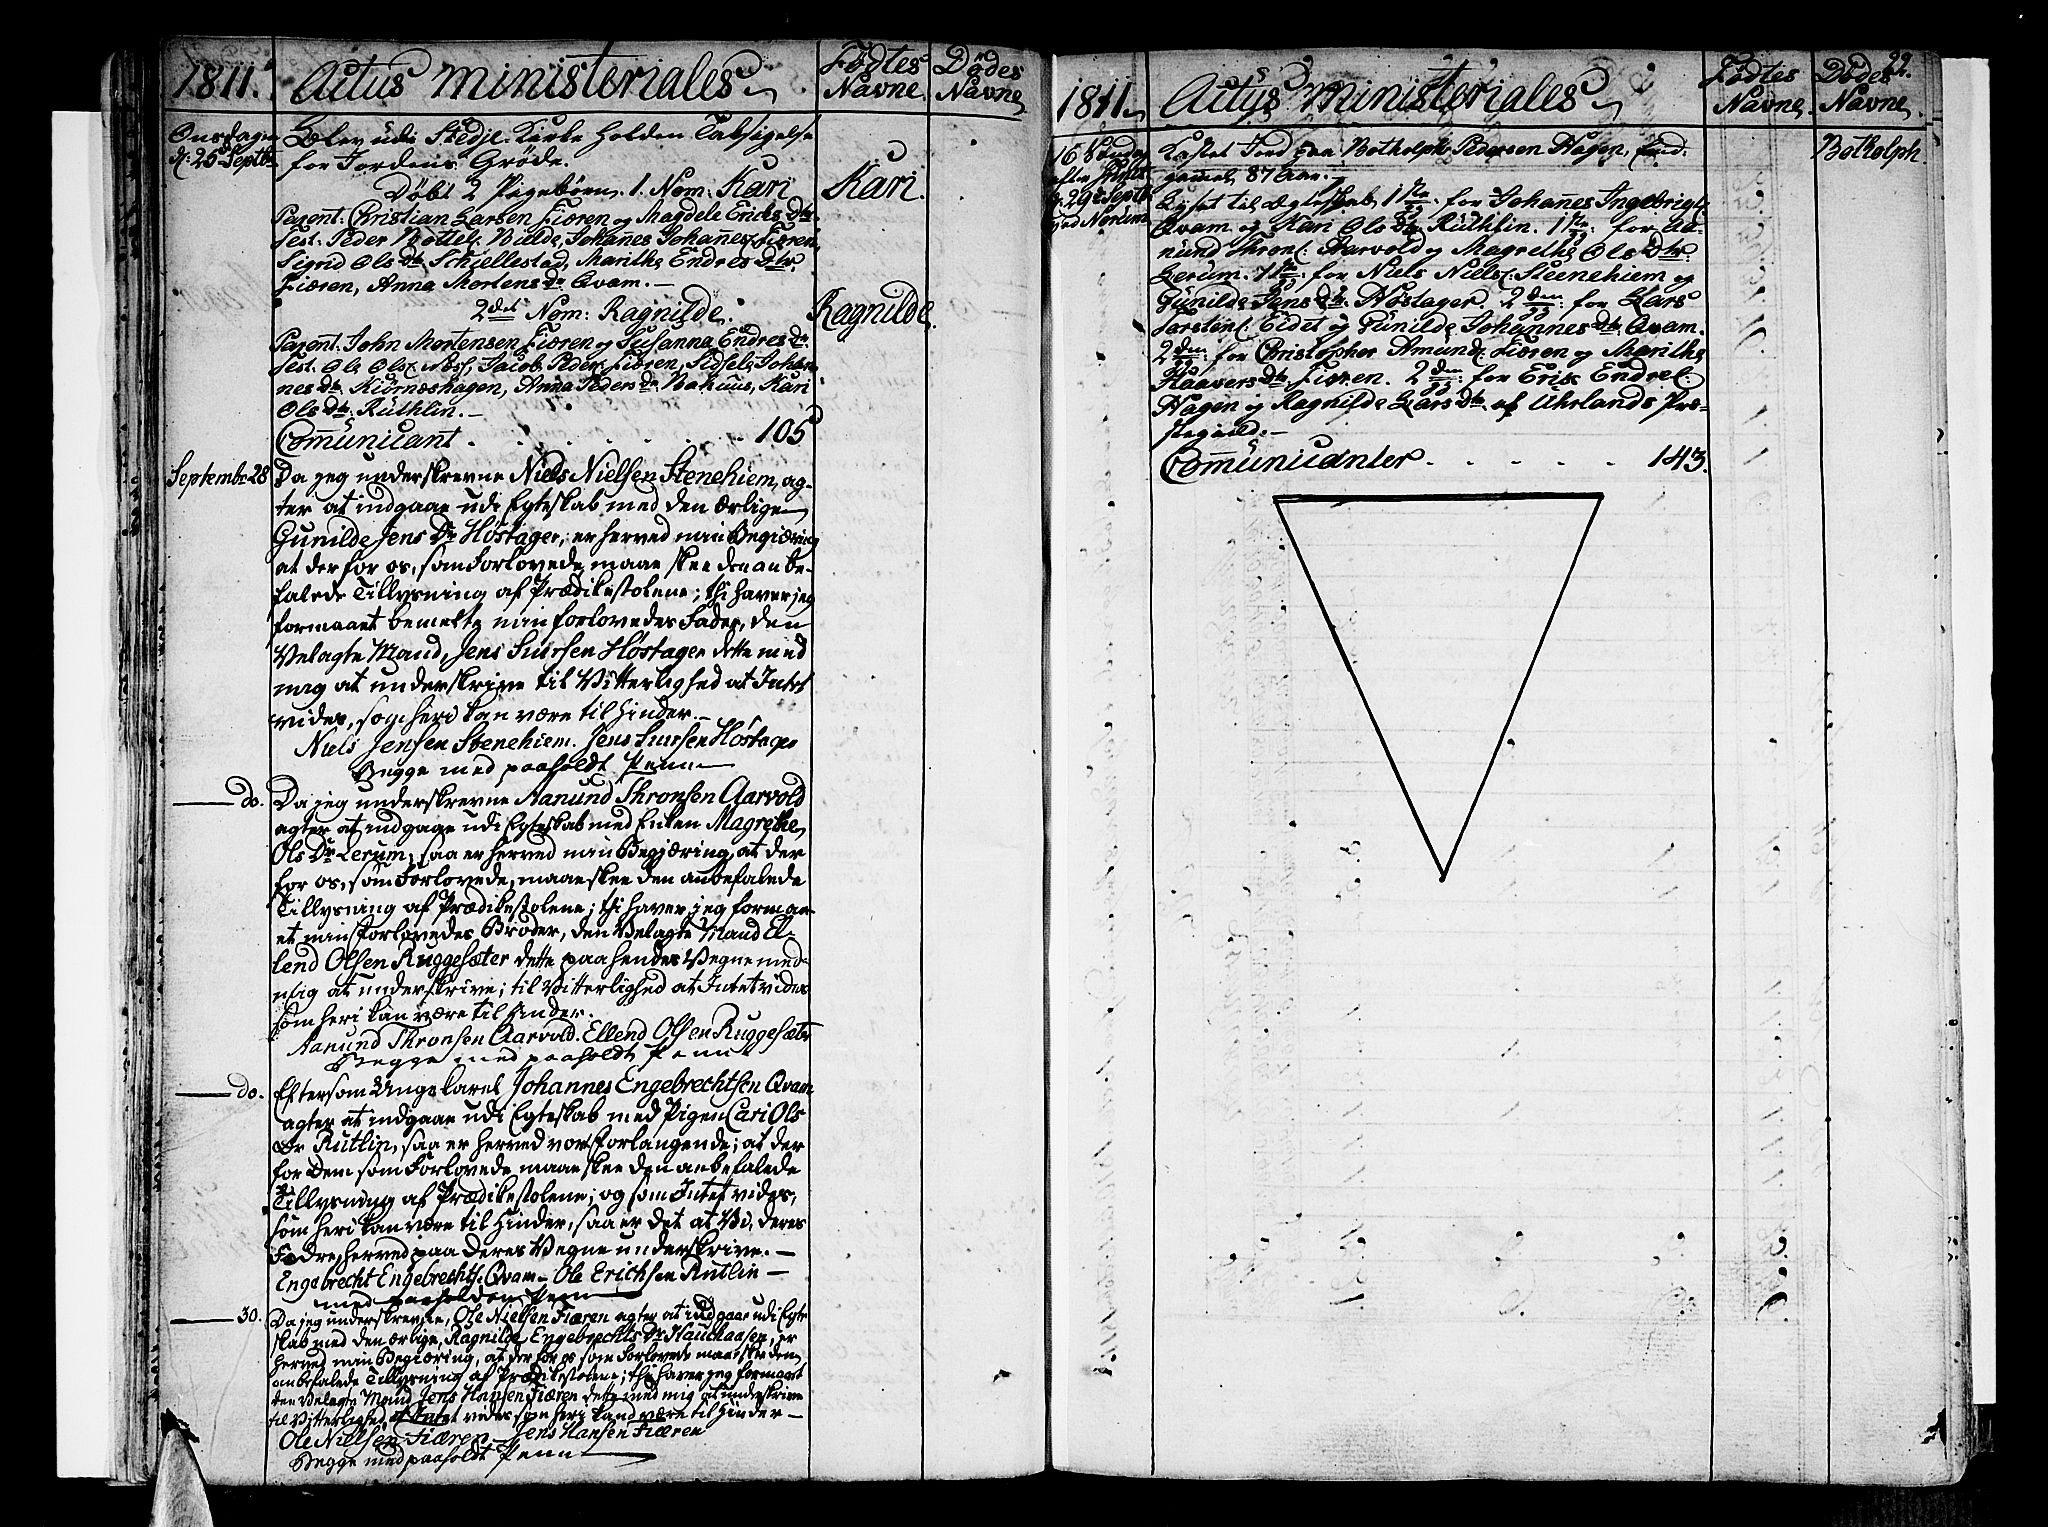 1811. Actus ministeriales
Fødtes Navne.
Dødes Navne
Onsdagen
d: 25 Septbr
Blev udi Stedje Kirke holden Taksigelse
for Jordens Grøde.
Døbt 2 Pigebørn. 1. Nom: Kari
Kari.
Parent: Christian Larsen Fiæren og Magdele Ericks Dtr
Test: Peder Bottels. Bielde, Johañes Johañes. Fiæren,
Sigrid Ols Dtr Schiellestad, Marithe Endres Dtr
Fiæren, Anna Mortens Dr Qvam.
2det Nom: Ragnilde.
Ragnilde.
Parent: John Mortensen Fiæren og Susanna Endres Dr
Test: Ole Ols. Næss, Jacob Peders. Fiæren, Sidsele Johan-
nes Dtr Kiørneshagen, Anna Peders Dr Kari
Ols Dtr: Ruthlin.
Com̄unicant . . . . . . . 105
Septembr 28
Da jeg underskrevne Niels Nielsen Stenehiem, ag-
ter at indgaae udi Egteskab med den ærlige
Gunilde Jens Dr Høstager, er herved min Begiæring
at der for os, som Forlovede, maae skee den anbe-
falede Tillysning af Prædikestolene; thi haver jeg
formaaet bemelte min forlovedes Fader, den
Velagte Mand, Jens Siursen Høstager dette med
mig at underskrive til Vitterlighed at Intet
vides, som heri kan være til Hinder.
Niels Jensen Stenehiem. Jens Siursen Høstager
Begge med paaholdt Penn
do.
Da jeg underskrevne Aanund Thronsen Aarvold
agter at indgaae udi Egteskab med Enken Magrethe
Ols Dr Lerum, saa er herved min Begjæring, at der
for os, som Forlovede, maae skee den anbefalede
Tillysning af Prædikestolene; thi haver jeg formaa-
et min Forlovedes Broder, den Velagte Mand El-
lend Olsen Ruggesæter dette paa hendes Vegne med
mig at underskrive; til Vitterlighed at Intet vides
som heri kan være til Hinder.
Aanund Thronsen Aarvold. Ellend Olsen Ruggesæter
Begge med paaholdt Penn
do.
Eftersom Ungekarl Johannes Engebrechtsen Qvam
agter at indgaae udi Egteskab med Pigen Cari Ols
Dr Rutlin, saa er herved vor Forlangende; at der
for Dem som Forlovede maae skee den anbefalede
Tillysning af Prædikestolene; og som Intet vides,
som heri kan være til Hinder, saa er det at Vi, deres
Fædre, herved paa deres Vegne underskrive.
Engebrecht Engebrechts. Qvam Ole Erichsen Rutlin
med paaholden Penn
30.
Da jeg underskrevne, Ole Nielsen Fiæren agter at indgaae udi Egte-
skab med den ærlige, Ragnilde Engebrechts Dr Hauchaasen, er
herved min Begiæring, at der for os som Forlovede maae skee den
anbefalede Tillysning af Prædikestolene; thi haver jeg formaaet
den Velagte Mand Jens Hansen Fiæren dette med mig at underskrive
til Vitterlighed, at Intet vides som heri kand være til Hinder
Ole Nielsen Fiæren Jens Hansen Fiæren
Begge med paaholdt Penn
22.
1811. Actus ministeriales
Fødtes Navne.
Dødes Navne.
16 Søndag
efter
d. 29de Septb
ved Norum
Kastet Jord paa Botholph Pedersen Hagen,
gammel 87 Aar.
Botholph.
Lyset til Ægteskab 1ste for Johañes Ingebrigts.
Qvam og Kari Ols Dtr Ruthlin. 1ste: for Aa-
nund Throns. Aarvold og Magrethe Ols Dtr
Lerum. 1ste for Niels Niels. Steenehiem og
Gunilde Jens Dtr Høstager. 2den: for Lars
Torstens. Eidet og Gunilde Johannes Dtr Qvam.
2den: for Christopher Amunds. Fiæren og Marithe
Haavers Dtr Fiæren. 2den: for Erik Endres.
Hagen og Ragnilde Lars Dtr af Uhrlands Præ-
stegield.
Com̄unicanter . . . . . 143.